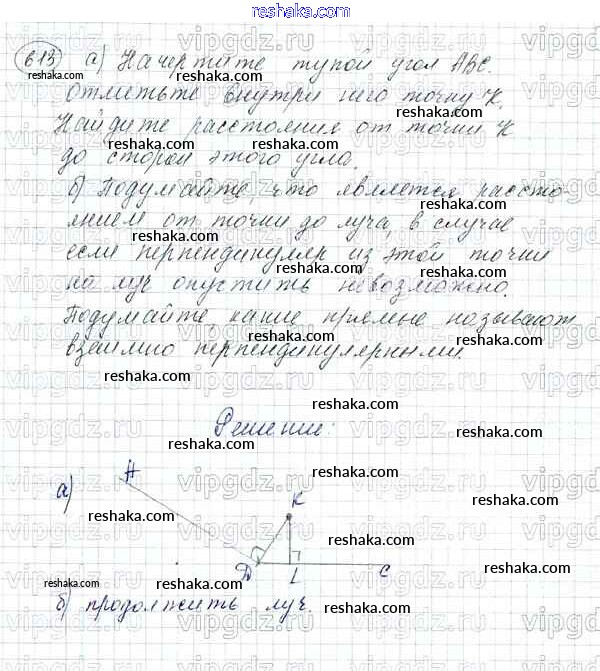 reshaka.com
613 а) Начертите тупой угол ABC.
отметьте внутри него точку K.
Найдите расстояния от точки K
до сторон этого угла.
б) Подумайте, что является рассто-
янием от точки до луча, в случае
если перпендикуляр из этой точки
на луч опустить невозможно.
Подумайте, какие прямые называют
взаимно перпендикулярными.
Решение:
а)
A
K
D
L
C
б) продолжить луч.